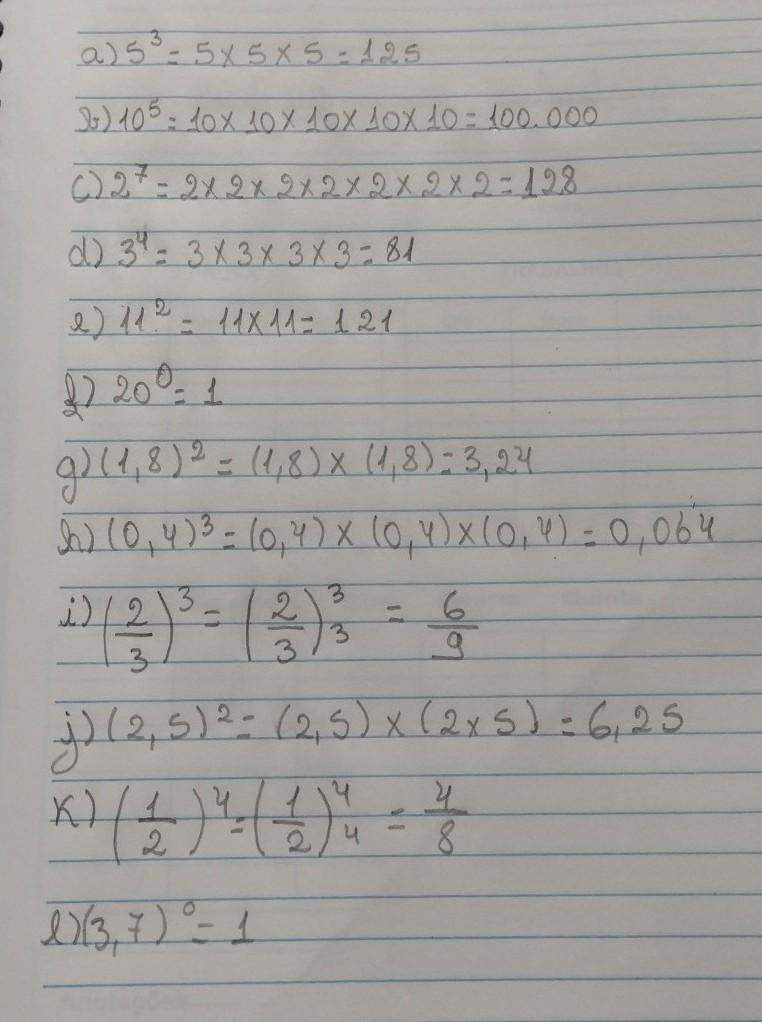 a) 5³ = 5 x 5 x 5 = 125
b) 10⁵ = 10 x 10 x 10 x 10 x 10 = 100.000
c) 2⁷ = 2 x 2 x 2 x 2 x 2 x 2 x 2 = 128
d) 3⁴ = 3 x 3 x 3 x 3 = 81
e) 11² = 11 x 11 = 121
f) 20⁰ = 1
g) (1,8)² = (1,8) x (1,8) = 3,24
h) (0,4)³ = (0,4) x (0,4) x (0,4) = 0,064
i) (2/3)³ = (2/3)³₃ = 6/9
j) (2,5)² = (2,5) x (2x5) = 6,25
K) (1/2)⁴ = (1/2)⁴₄ = 4/8
l) (3,7)⁰ = 1